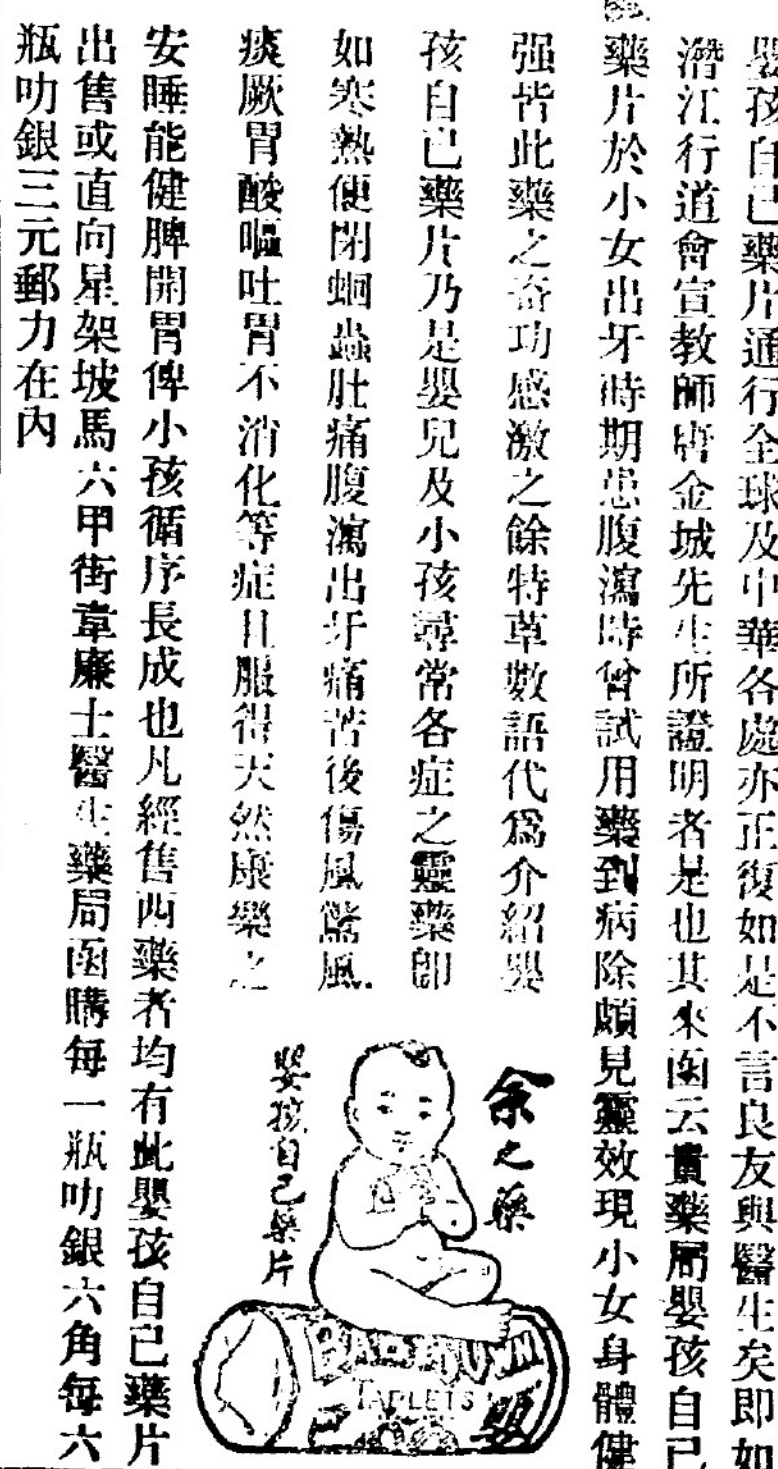 嬰孩自己藥片通行全球及中華各處亦正復如是不言良友與醫生矣即如
潛江行道會宣教師唐金城先生所證明者是也其來函云貴藥局嬰孩自己
藥片於小女出牙時期患腹瀉時曾試用藥到病除頗見靈效現小女身體健
强皆此藥之奇功感激之餘特草數語代爲介紹嬰
孩自己藥片乃是嬰兒及小孩尋常各症之靈藥即
如寒熱便閉蛔蟲肚痛腹瀉出牙痛苦後傷風驚風
痰厥胃酸嘔吐胃不消化等症且服得天然康樂之
安睡能健脾開胃俾小孩循序長成也凡經售西藥者均有此嬰孩自己藥片
出售或直向星架坡馬六甲街韋廉士醫生藥局函購每一瓶叻銀六角每六
瓶叻銀三元郵力在內
余之藥
嬰孩自己藥片
BABY'S OWN
TABLETS